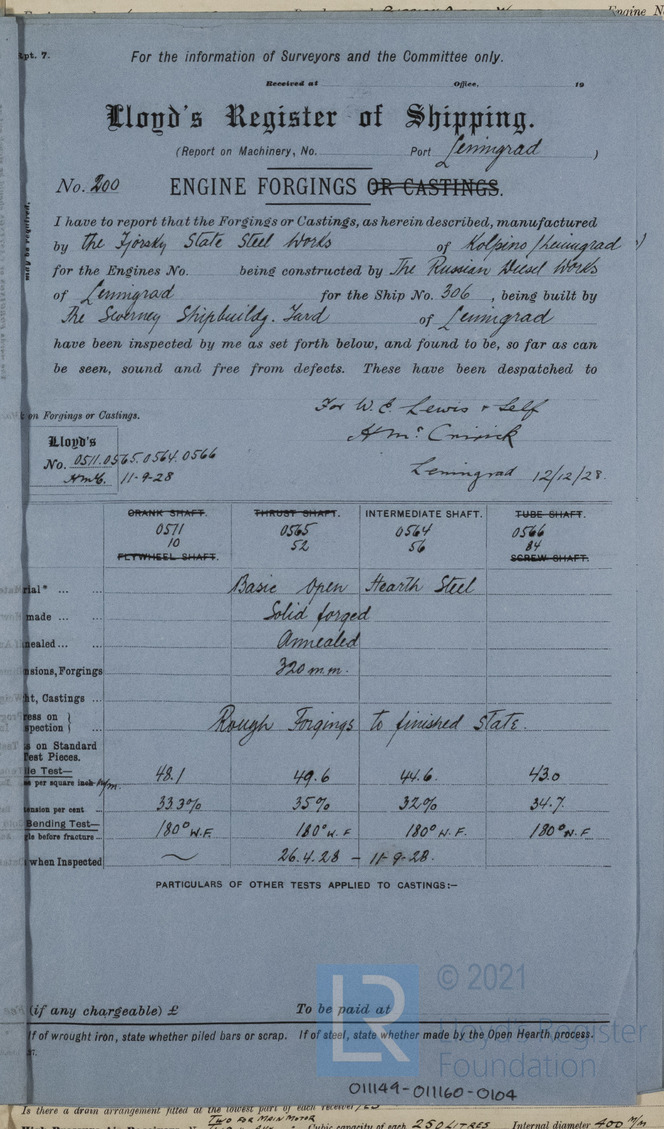 Engine No
Rpt. 7.
For the information of Surveyors and the Committee only.
Received at Office, 19
Lloyd's Register of Shipping.
(Report on Machinery, No. Port Leningrad )
No. 200 ENGINE FORGINGS OR CASTINGS.
may be required.
I have to report that the Forgings or Castings, as herein described, manufactured
by the Ijorsky State Steel Works of Kolpino (Leningrad)
for the Engines No. being constructed by The Russian Diesel Works
of Leningrad for the Ship No. 306, being built by
The Severney Shipbuildg. Yard of Leningrad
have been inspected by me as set forth below, and found to be, so far as can
be seen, sound and free from defects. These have been despatched to
on Forgings or Castings.
For W.E. Lewis & Self
Lloyd's
No. 0511.0565.0564.0566
11-9-28
Leningrad 12/12/28.
CRANK SHAFT. THRUST SHAFT. INTERMEDIATE SHAFT. TUBE SHAFT.
0571 0565 0564 0566
10 52 56 84
FLYWHEEL SHAFT. SCREW SHAFT.
rial* ... ... Basic Open Hearth Steel
made ... ... Solid forged
nealed ... ... Annealed
nsions, Forgings 320 m.m.
ht, Castings ...
ress on } spection } ... Rough Forgings to finished state.
s on Standard
Test Pieces.
le Test—
per square inch 48.1 49.6 44.6. 43.0
tension per cent ... 33.3% 35% 32% 34.7.
Bending Test—
gle before fracture ... 180° W.F. 180° W.F 180° W.F. 180° W.F
when Inspected 26.4.28 – 11-9-28.
PARTICULARS OF OTHER TESTS APPLIED TO CASTINGS:–
© 2021
LR
Lloyd's Register
Foundation
(if any chargeable) £ To be paid at
If of wrought iron, state whether piled bars or scrap. If of steel, state whether made by the Open Hearth process.
011149-011160-0104
Is there a drain arrangement fitted at the lowest part of each receiver YES
TWO FOR MAIN MOTOR
Cubic capacity of each 250 LITRES Internal diameter 400 m/m